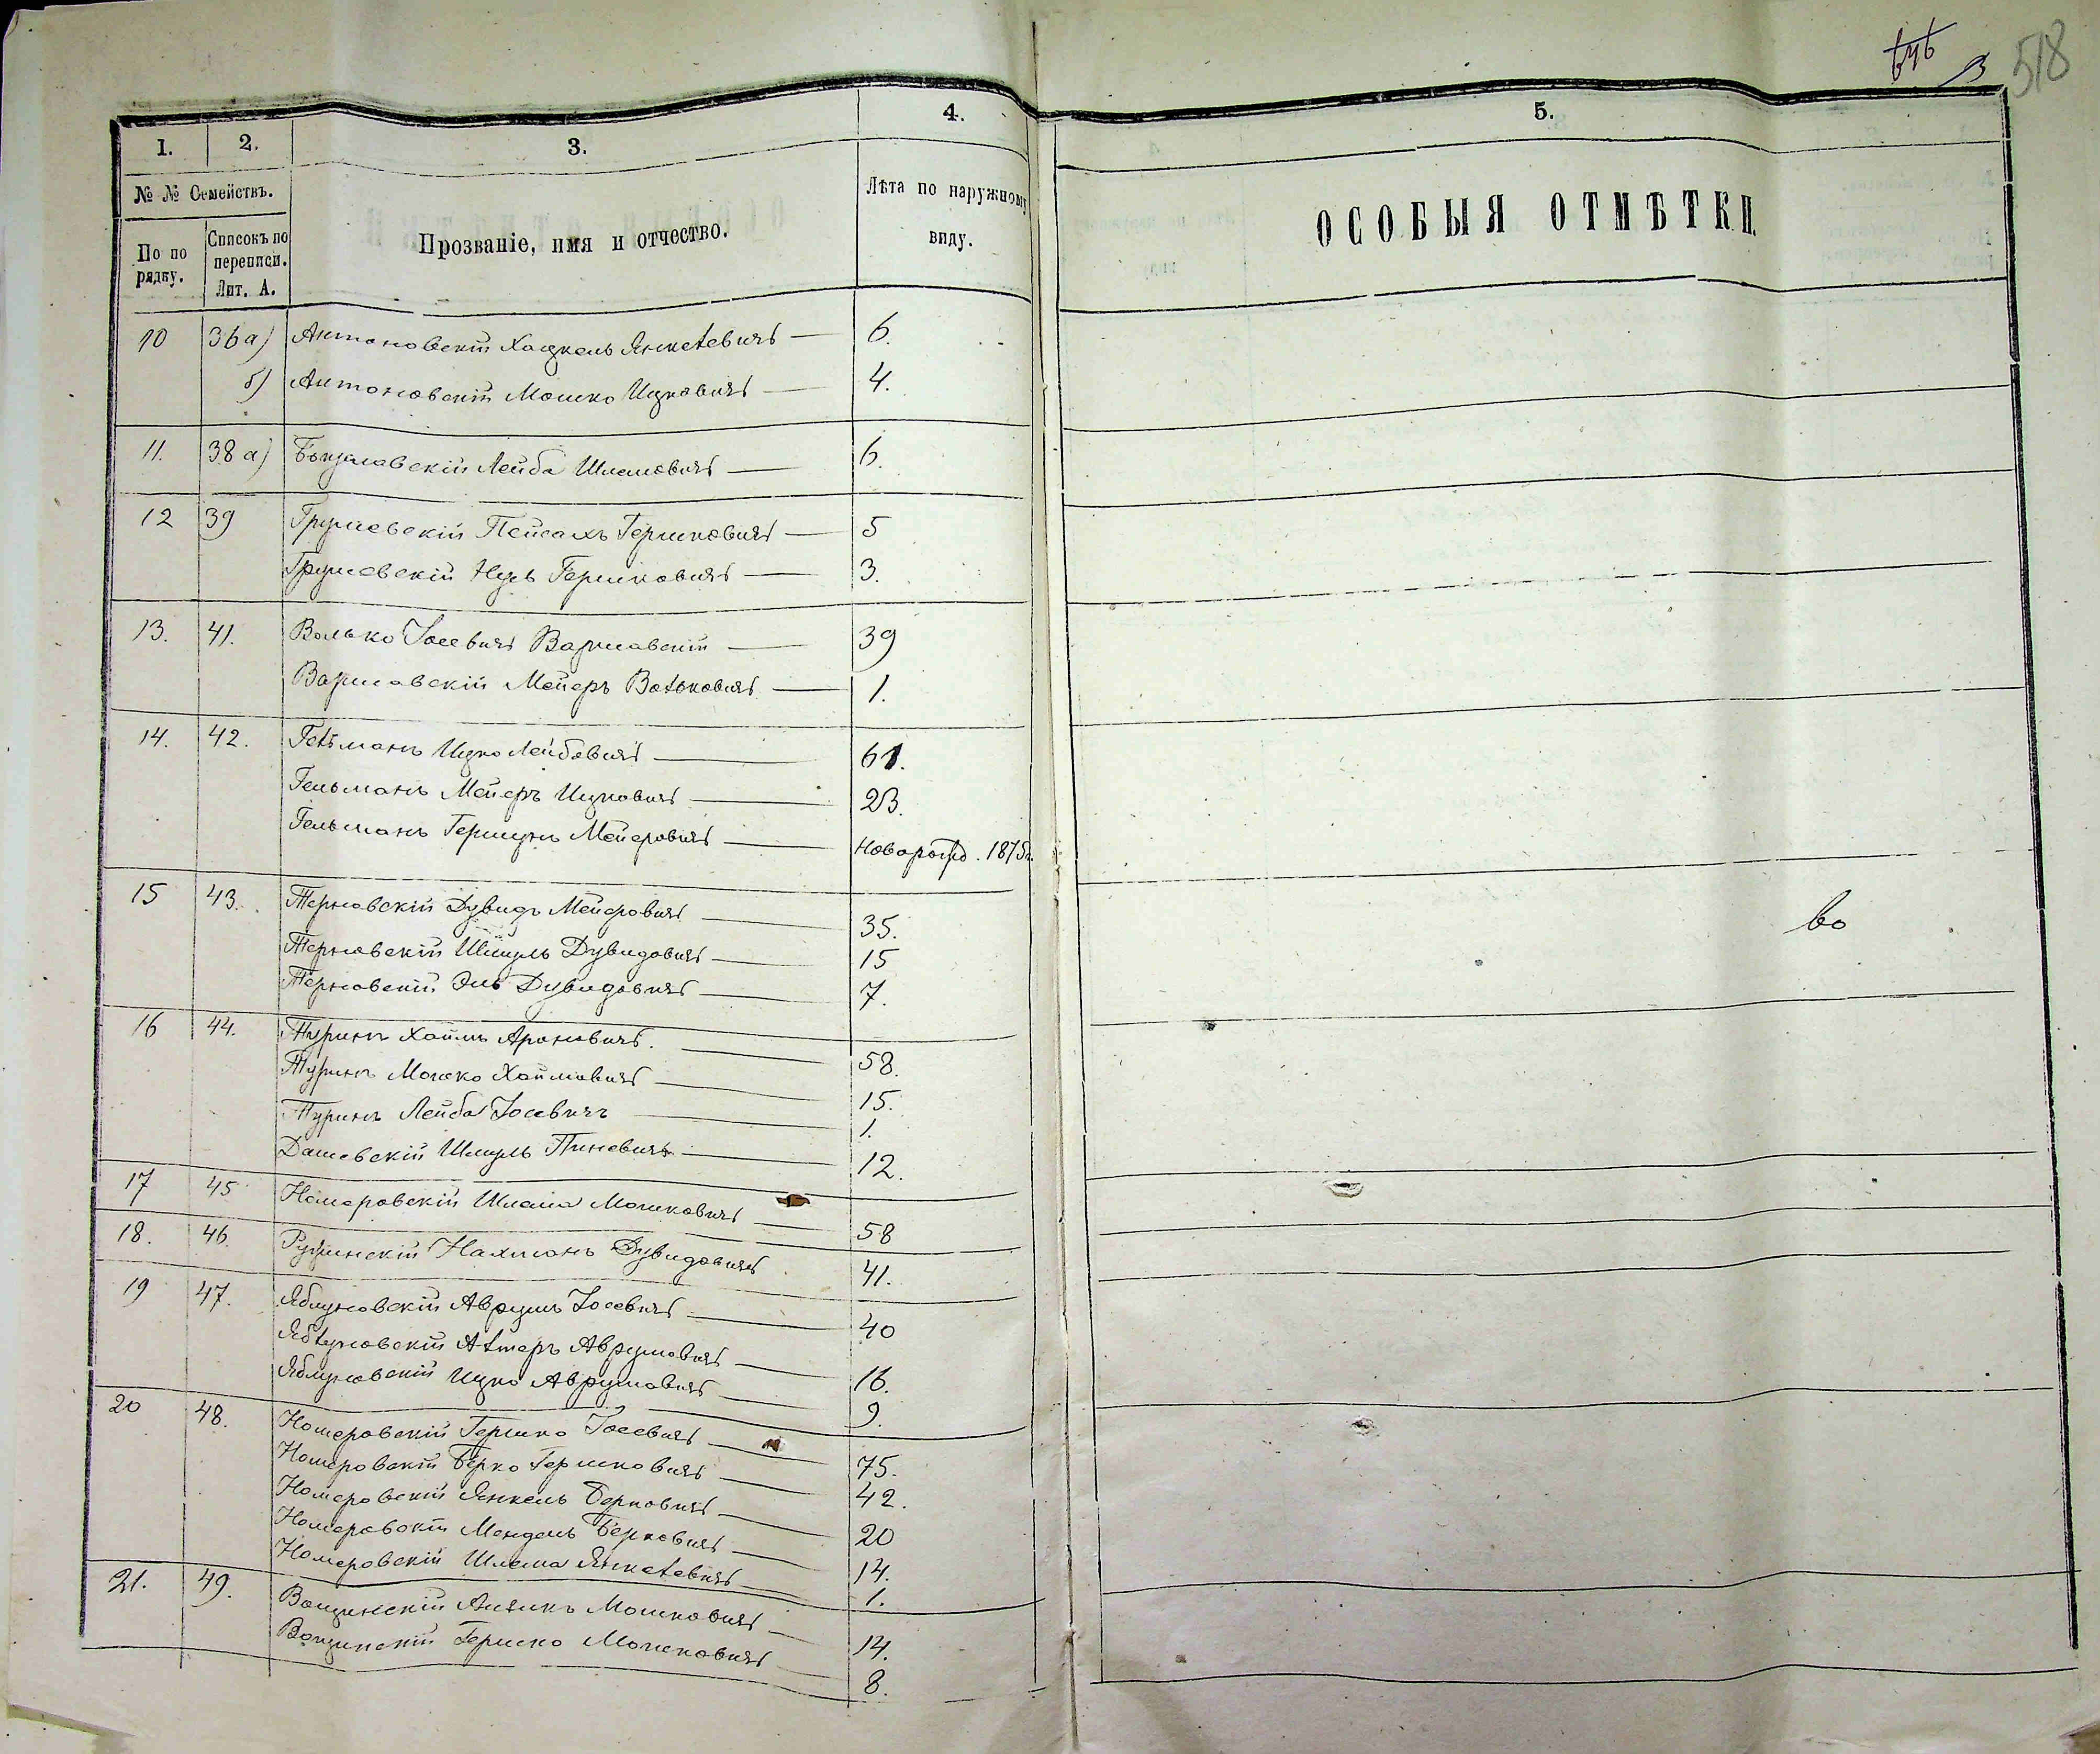 518
1. 2. 3. 4. 5.
№ № Семействъ.
По по рядку.
Списокъ по переписи. Лит. А.
Прозваніе, имя и отчество.
Лѣта по наружному виду.
ОСОБЫЯ ОТМѢТКИ.
10 36 а) Антоновскій Хацкель Янкелевичъ — 6.
б) Антоновскій Мошко Ицковичъ — 4.
11. 38 а) Богуславскій Лейба Шлемовичъ — 6.
12 39 Грушевскій Пейсахъ Гершковичъ — 5
Грушевскій Нусъ Гершковичъ — 3.
13. 41. Волько Іосевичъ Варшавскій — 39
Варшавскій Мейеръ Вольковичъ — 1.
14. 42. Гельманъ Ицко Лейбовичъ — 61.
Гельманъ Мейеръ Ицковичъ — 23.
Гельманъ Гершунъ Мейеровичъ —Новорожд. 1875г.
15 43. Терновскій Дувидъ Мейеровичъ — 35.
во
Терновскій Шмуль Дувидовичъ — 15
Терновскій Эль Дувидовичъ — 7.
16 44. Туринъ Хаимъ Ароновичъ. — 58.
Туринъ Мошко Хаимовичъ — 15.
Туринъ Лейба Іосевичъ — 1.
Дашевскій Шмуль Пиневичъ — 12.
17 45 Номеровскій Шлема Мошковичъ — 58
18. 46. Ружинскій Нахманъ Дувидовичъ 41.
19 47. Яблуновскій Аврумъ Іосевичъ — 40
Яблуновскій Алтеръ Аврумовичъ — 16.
Яблуновскій Ицко Аврумовичъ — 9.
20 48. Номеровскій Гершко Іосевичъ — 75.
Номеровскій Берко Гершковичъ — 42.
Номеровскій Янкель Берковичъ — 20
Номеровскій Мендель Берковичъ — 14.
Номеровскій Шлема Янкелевичъ — 1.
21. 49. Мошковичъ — 14.
Гершко Мошковичъ 8.